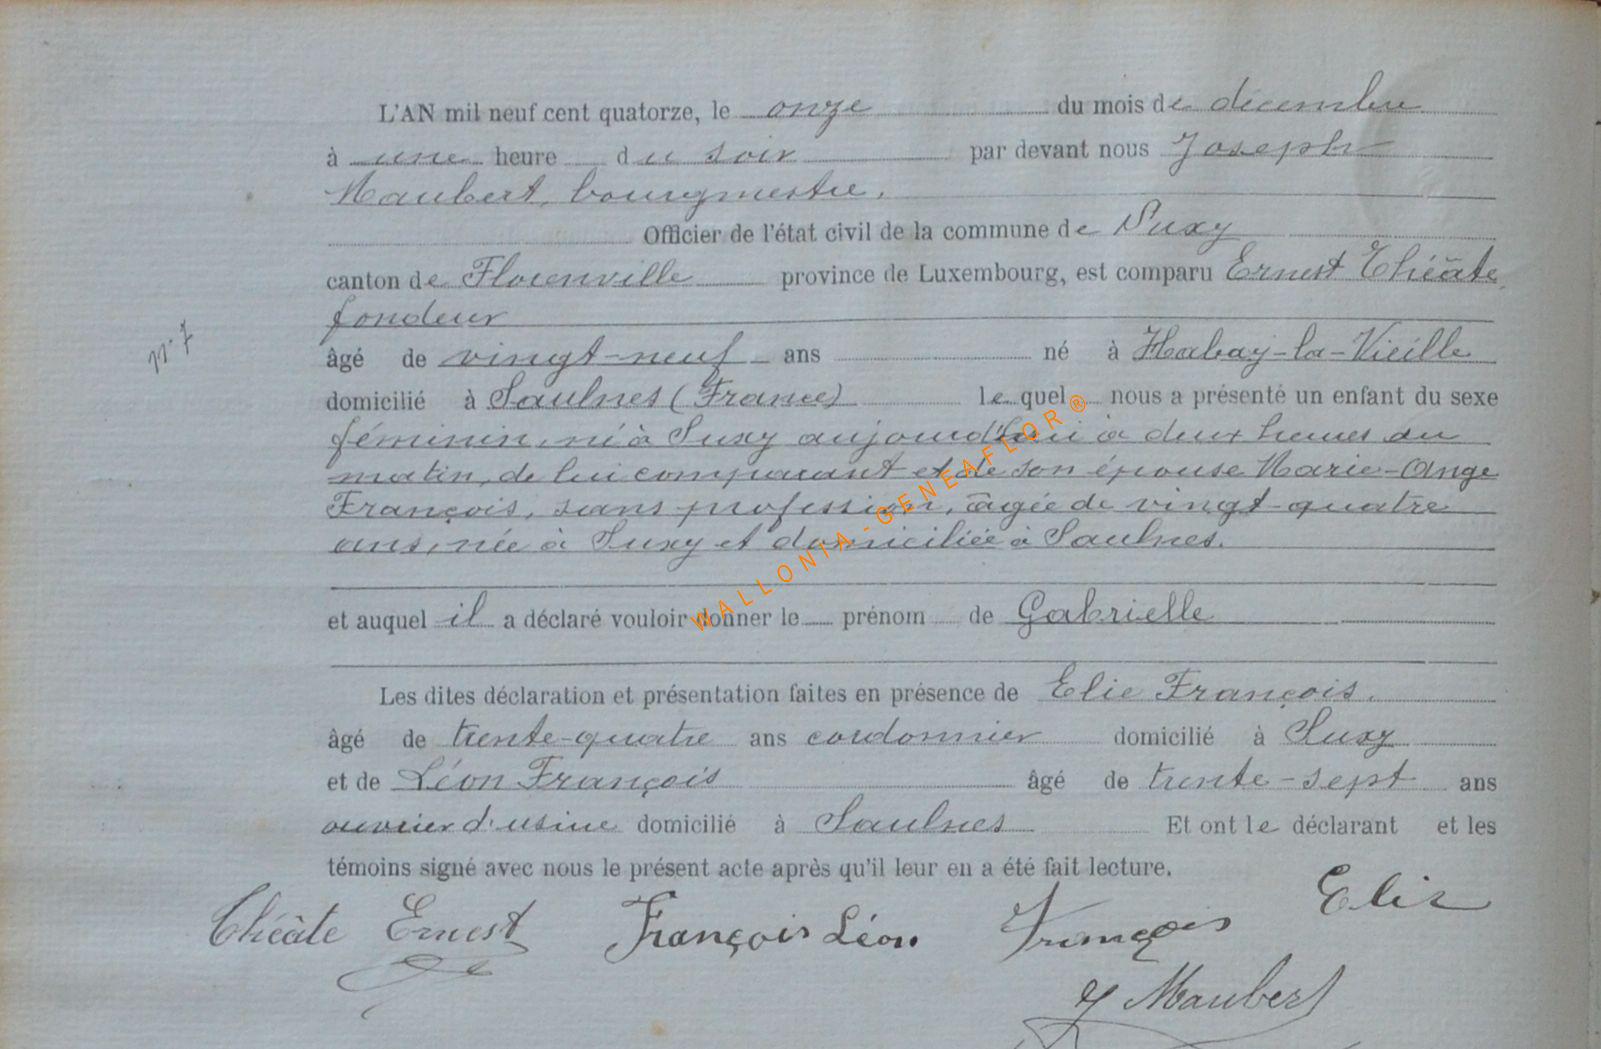 L'AN mil neuf cent quatorze, le onze du mois de décembre
à une heure du soir par devant nous Joseph
Maubert, bourgmestre,
Officier de l'état civil de la commune de Suxy
canton de Florenville province de Luxembourg, est comparu Ernest Théâte,
fondeur
n° 7
âgé de vingt-neuf ans né à Habay-la-Vieille
domicilié à Saulnes (France) lequel nous a présenté un enfant du sexe
féminin, né à Suxy aujourd'hui à deux heures du
matin, de lui comparant et de son épouse Marie-Ange
François, sans profession, âgée de vingt-quatre
ans, née à Suxy et domiciliée à Saulnes.
et auquel il a déclaré vouloir donner le prénom de Gabrielle
WALLONIA-GENEAFLOR®
Les dites déclaration et présentation faites en présence de Elie François,
âgé de trente-quatre ans cordonnier domicilié à Suxy
et de Léon François âgé de trente-sept ans
ouvrier d'usine domicilié à Saulnes Et ont le déclarant et les
témoins signé avec nous le présent acte après qu'il leur en a été fait lecture.
Théâte Ernest François Léon François Elie
J Maubert